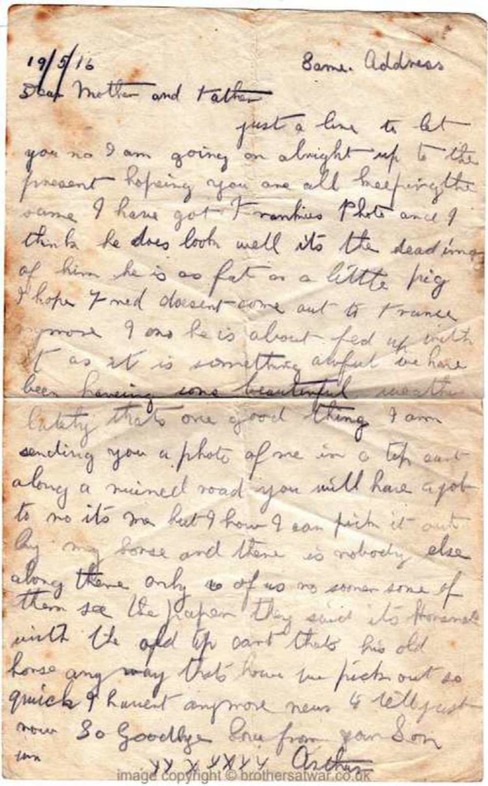 19/5/16 Same. Address
Dear Mother and Father
just a line to let
you no I am going on alright up to the
present hoping you are all keeping the
same I have got Frankies Photo and I
think he does look well its the dead
of him he is as fat as a little pig
I hope Fred doesent come out to France
anymore I he is about fed up with
it as it is something awful we have
been having some beautiful weather
lately thats one good thing I am
sending you a photo of me in a tip cart
along a ruined road you will have a job
to no its me but I can pick it out
by my horse and there is nobody else
along there only of us no sooner some of
them see the paper they said its
with the old tip cart thats his old
horse any way thats how we pick out so
quick I havent anymore news to tell just
now So Goodbye love from your Son
Arthur
image copyright © brothersatwar.co.uk